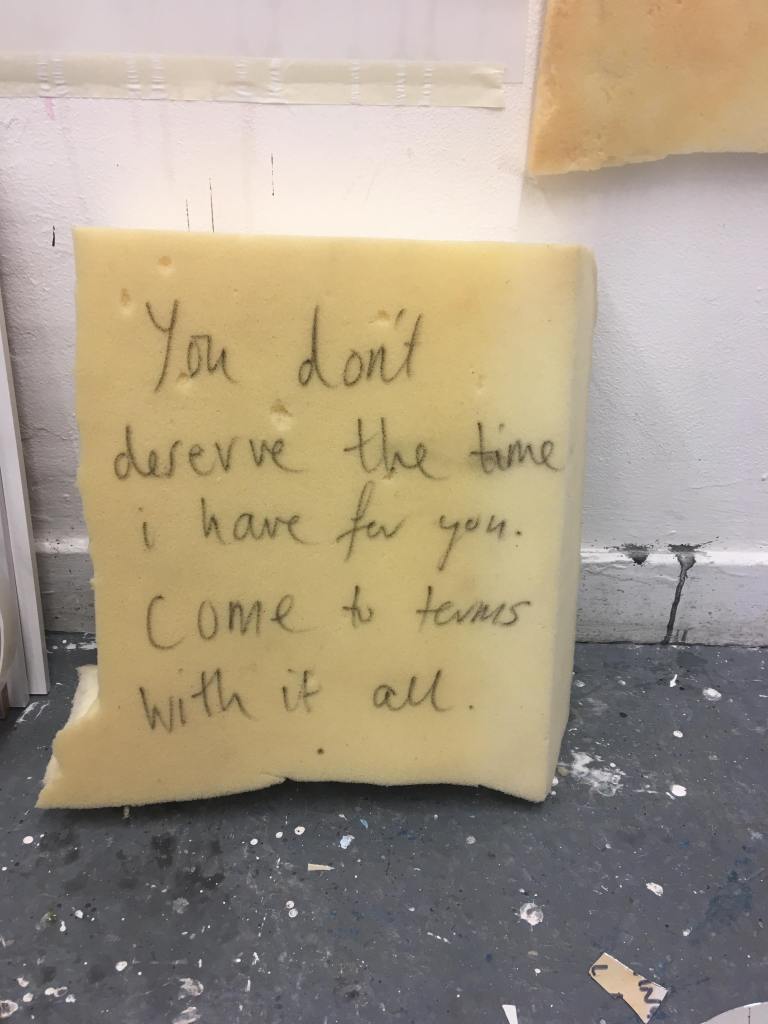 You don't
deserve the time
i have for you.
Come to terms
with it all.